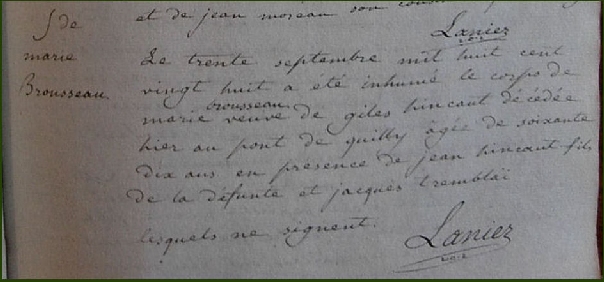 et de jean moreau son cousin
Laniez
S de
marie
Brousseau
Le trente septembre mil huit cent
vingt huit a été inhumé le corps de
brousseau
marie veuve de giles hincaut décédée
hier au pont de quilly âgée de soixante
dix ans en presence de jean hincaut fils
de la défunte et jacques tremblaï
lesquels ne signent.
Laniez